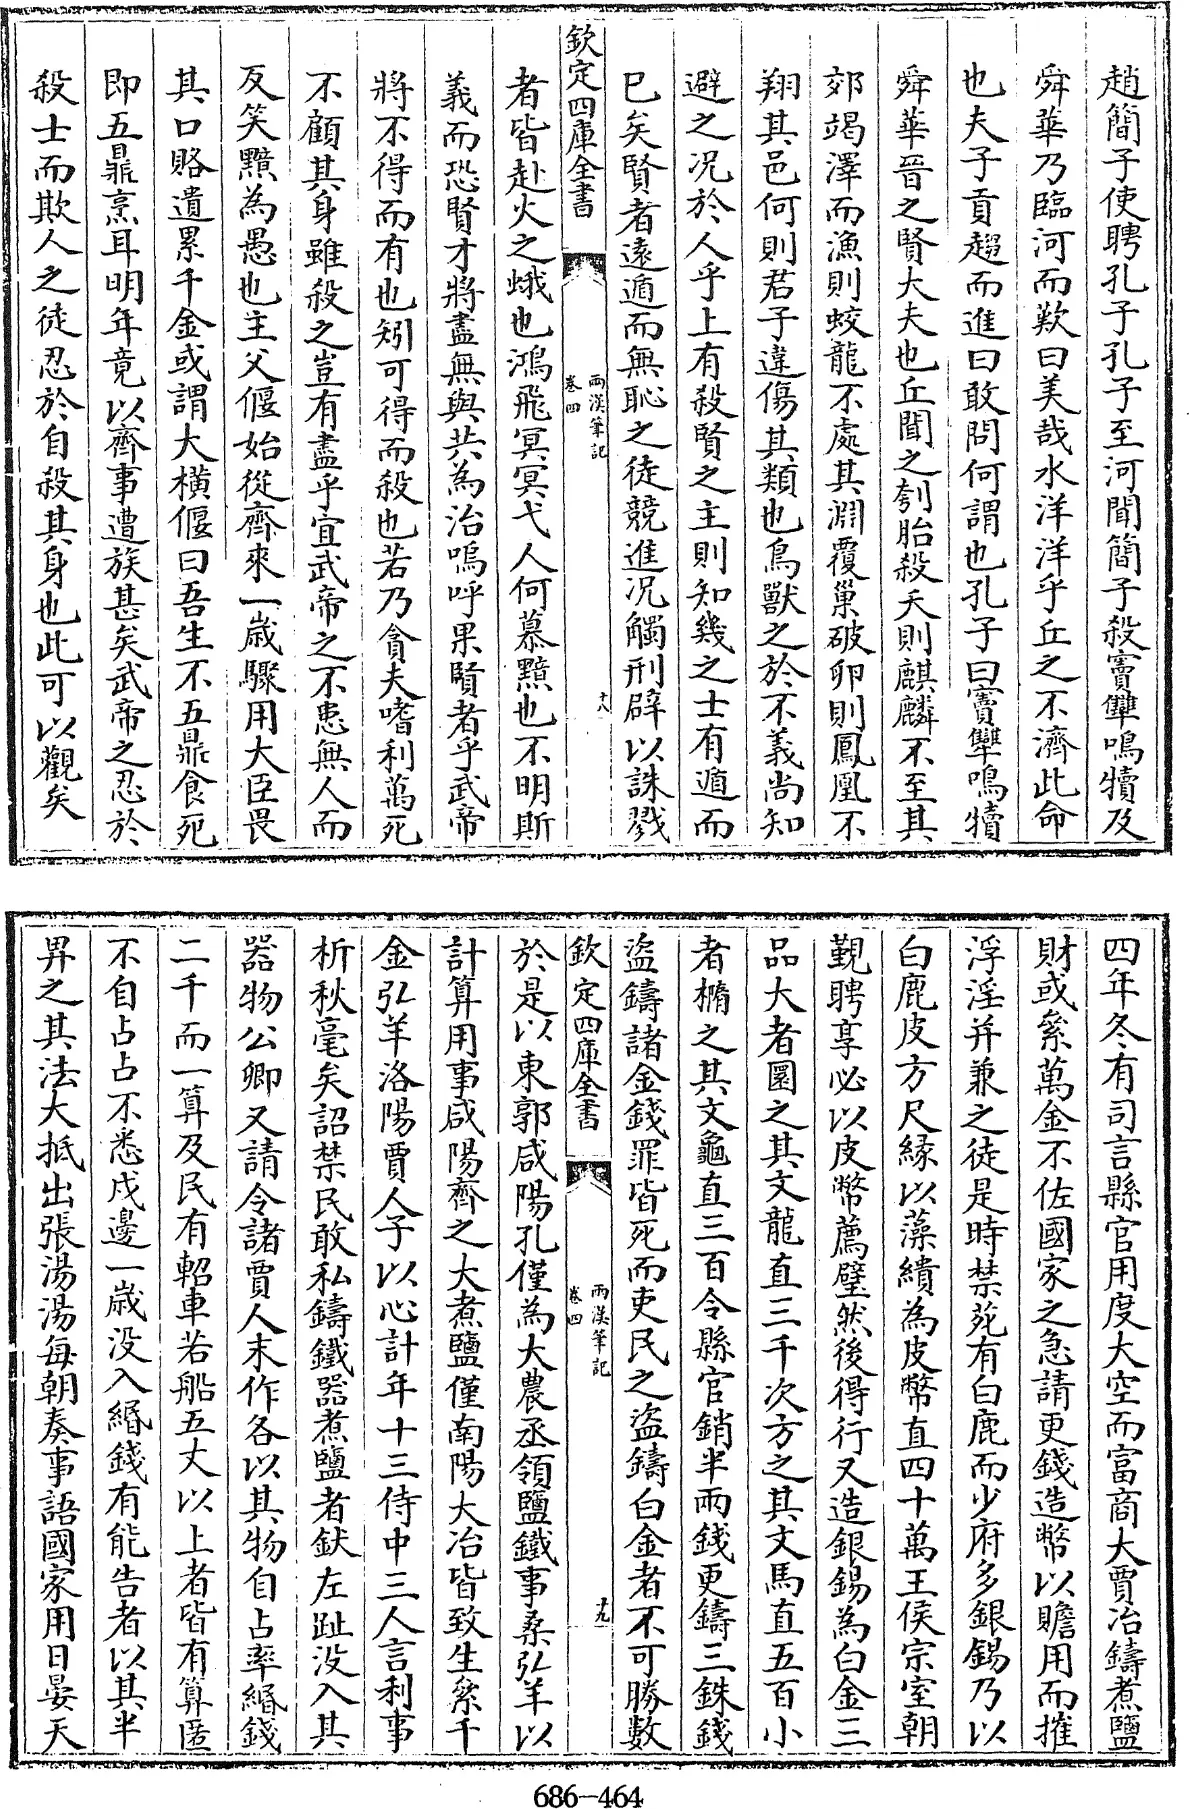 趙簡子使聘孔子孔子至河聞簡子殺竇犨鳴犢及
舜華乃臨河而歎曰美哉水洋洋乎丘之不濟此命
也夫子貢趨而進曰敢問何謂也孔子曰竇犨鳴犢
舜華晉之賢大夫也丘聞之刳胎殺夭則麒麟不至其
郊竭澤而漁則蛟龍不處其淵覆巢破卵則鳳凰不
翔其邑何則君子違傷其類也鳥獸之於不義尚知
避之况於人乎上有殺賢之主則知幾之士有遁而
已矣賢者遠遁而無恥之徒競進况觸刑辟以誅戮
欽定四庫全書
兩漢筆記
卷四
十八
者皆赴火之蛾也鴻飛冥冥弋人何慕黯也不明斯
義而恐賢才將盡無與共為治嗚呼果賢者乎武帝
將不得而有也矧可得而殺也若乃貪夫嗜利萬死
不顧其身雖殺之豈有盡乎宜武帝之不患無人而
反笑黯為愚也主父偃始從齊來一歲驟用大臣畏
其口賂遺累千金或謂大橫偃曰吾生不五鼎食死
即五鼎烹耳明年竟以齊事遭族甚矣武帝之忍於
殺士而欺人之徒忍於自殺其身也此可以觀矣
四年冬有司言縣官用度大空而富商大賈冶鑄煮鹽
財或絫萬金不佐國家之急請更錢造幣以贍用而摧
浮淫并兼之徒是時禁苑有白鹿而少府多銀錫乃以
白鹿皮方尺緣以藻繢為皮幣直四十萬王侯宗室朝
覲聘享必以皮幣薦璧然後得行又造銀錫為白金三
品大者圜之其文龍直三千次方之其文馬直五百小
者橢之其文龜直三百令縣官銷半兩錢更鑄三銖錢
盜鑄諸金錢罪皆死而吏民之盜鑄白金者不可勝數
欽定四庫全書
兩漢筆記
卷四
十九
於是以東郭咸陽孔僅為大農丞領鹽鐵事桑弘羊以
計算用事咸陽齊之大煮鹽僅南陽大冶皆致生絫千
金弘羊洛陽賈人子以心計年十三侍中三人言利事
析秋毫矣詔禁民敢私鑄鐵器煮鹽者釱左趾没入其
器物公卿又請令諸賈人末作各以其物自占率緡錢
二千而一算及民有軺車若船五丈以上者皆有算匿
不自占占不悉戍邊一歲没入緡錢有能告者以其半
畀之其法大抵出張湯湯每朝奏事語國家用日晏天
686-464